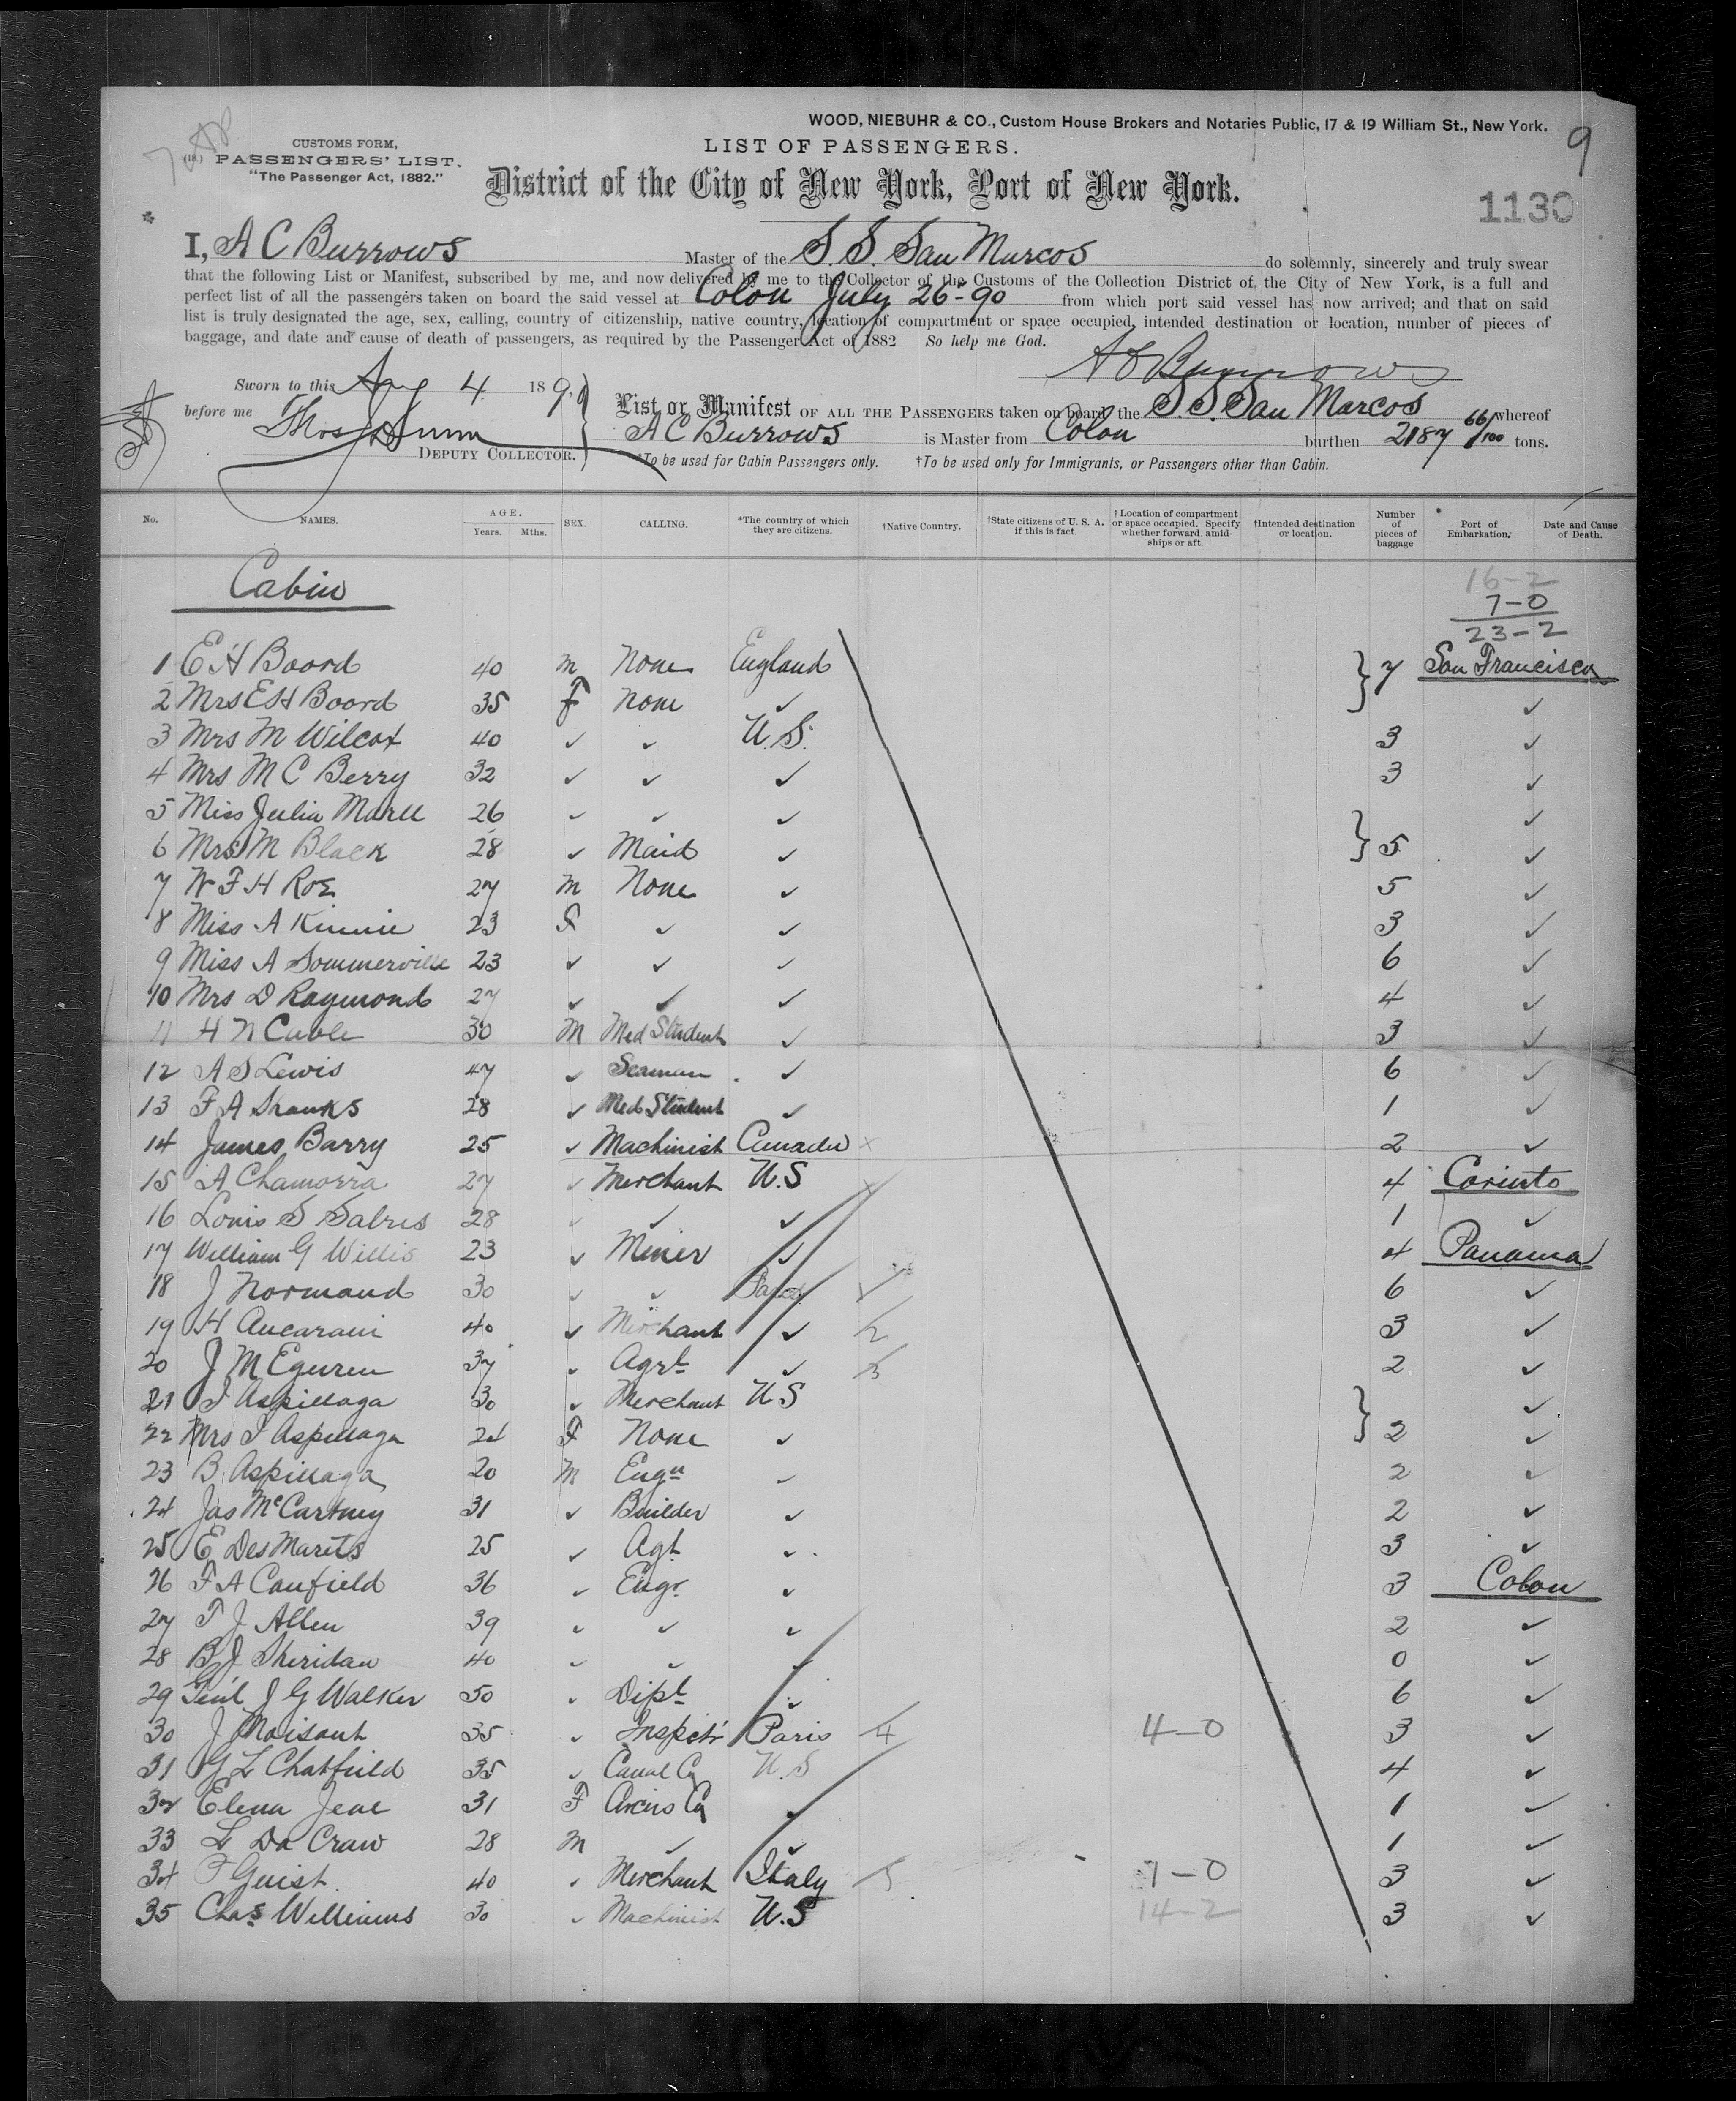 WOOD, NIEBUHR & CO., Custom House Brokers and Notaries Public, 17 & 19 William St., New York.
9
CUSTOMS FORM,
PASSENGERS' LIST.
"The Passenger Act, 1882."
LIST OF PASSENGERS.
District of the City of New York, Port of New York.
1130
I, A C Burrows Master of the S. S. San Marcos do solemnly, sincerely and truly swear
that the following List or Manifest, subscribed by me, and now delivered by me to the Collector of the Customs of the Collection District of the City of New York, is a full and
perfect list of all the passengers taken on board the said vessel at Colon July 26-90 from which port said vessel has now arrived; and that on said
list is truly designated the age, sex, calling, country of citizenship, native country, location of compartment or space occupied, intended destination or location, number of pieces of
baggage, and date and cause of death of passengers, as required by the Passenger Act of 1882 So help me God.
A C Burrows
Sworn to this Aug 4 1890
before me Thos Dunn
DEPUTY COLLECTOR.
List or Manifest OF ALL THE PASSENGERS taken on board the S. S. San Marcos whereof
A C Burrows is Master from Colon burthen 2187 66/100 tons.
*To be used for Cabin Passengers only. †To be used only for Immigrants, or Passengers other than Cabin.
No. NAMES. AGE. Years. Mths. SEX. CALLING. *The country of which they are citizens. †Native Country. †State citizens of U. S. A. if this is fact. †Location of compartment or space occupied. Specify whether forward, amidships or aft. †Intended destination or location. Number of pieces of baggage Port of Embarkation. Date and Cause of Death.
Cabin
16-2
7-0
23-2
1 E H Boord 40 m None England 7 San Francisco
2 Mrs E H Boord 35 f None ✓ ✓
3 Mrs M Wilcox 40 ✓ ✓ U.S. 3 ✓
4 Mrs M C Berry 32 ✓ ✓ ✓ 3 ✓
5 Miss Julia 26 ✓ ✓ ✓ ✓
6 Mrs M Black 28 ✓ Maid ✓ 5 ✓
7 W F H Roe 27 m None ✓ 5 ✓
8 Miss A Kinnie 23 F ✓ ✓ 3 ✓
9 Miss A Sommerville 23 ✓ ✓ ✓ 6 ✓
10 Mrs D Raymond 27 ✓ ✓ ✓ 4 ✓
11 H N Cuble 30 M Med Student ✓ 3 ✓
12 A S Lewis 47 ✓ Seaman ✓ 6 ✓
13 F A Shanks 28 ✓ Med Student ✓ 1 ✓
14 James Barry 25 ✓ Machinist Canada x 2 ✓
15 A Chamorra 27 ✓ Merchant U.S 4 Corinto
16 Louis S 28 ✓ ✓ ✓ 1 ✓
17 William G Willis 23 ✓ Miner ✓ 4 Panama
18 J Normand 30 ✓ ✓ 6 ✓
19 H 40 ✓ Merchant ✓ 2 3 ✓
20 J M Eguren 37 ✓ Agrl ✓ 3 2 ✓
21 I Aspillaga 30 ✓ Merchant U S ✓
22 Mrs I Aspillaga 24 F None ✓ 2 ✓
23 B Aspillaga 20 M Engn ✓ 2 ✓
24 Jas McCartney 31 ✓ Builder ✓ 2 ✓
25 E Des Marets 25 ✓ Agt ✓ 3 ✓
26 F A Canfield 36 ✓ Engr ✓ 3 Colon
27 T J Allen 39 ✓ ✓ ✓ 2 ✓
28 B J Sheridan 40 ✓ ✓ ✓ 0 ✓
29 Genl J G Walker 50 ✓ Dipl ✓ 6 ✓
30 J Moisant 35 ✓ Inspctr Paris 4 4-0 3 ✓
31 G L Chatfield 35 ✓ Canal Co U.S 4 ✓
32 Elena Jeal 31 F Circus Co ✓ 1 ✓
33 L Da Craw 28 m ✓ ✓ 1 ✓
34 Guist 40 ✓ Merchant Italy 5 7-0 3 ✓
35 Chas Williams 30 ✓ Machinist U.S 14-2 3 ✓